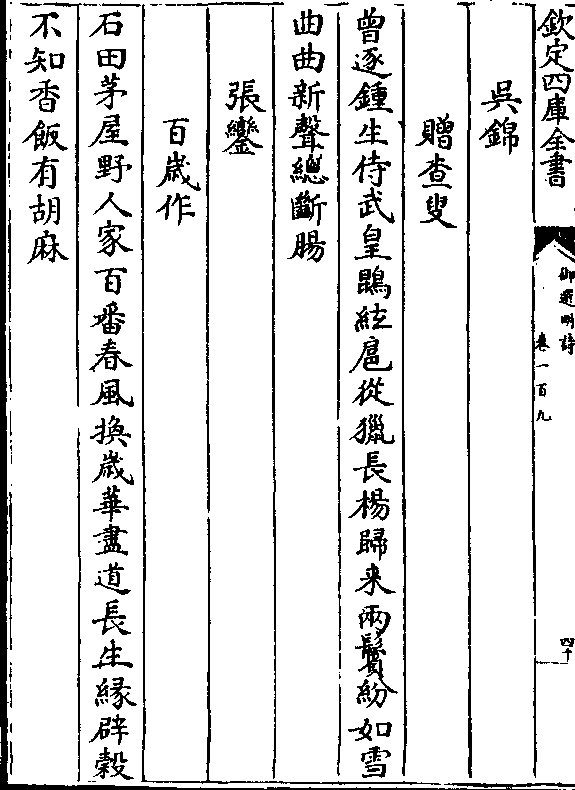 欽定四庫全書
御選明詩
卷一百九
四十
吳錦
贈查叟
曾逐鍾生侍武皇鵾絃扈從獵長楊歸来兩鬢紛如雪
曲曲新聲總斷腸
張鑾
百歲作
石田茅屋野人家百番春風換歲華盡道長生緣辟榖
不知香飯有胡麻